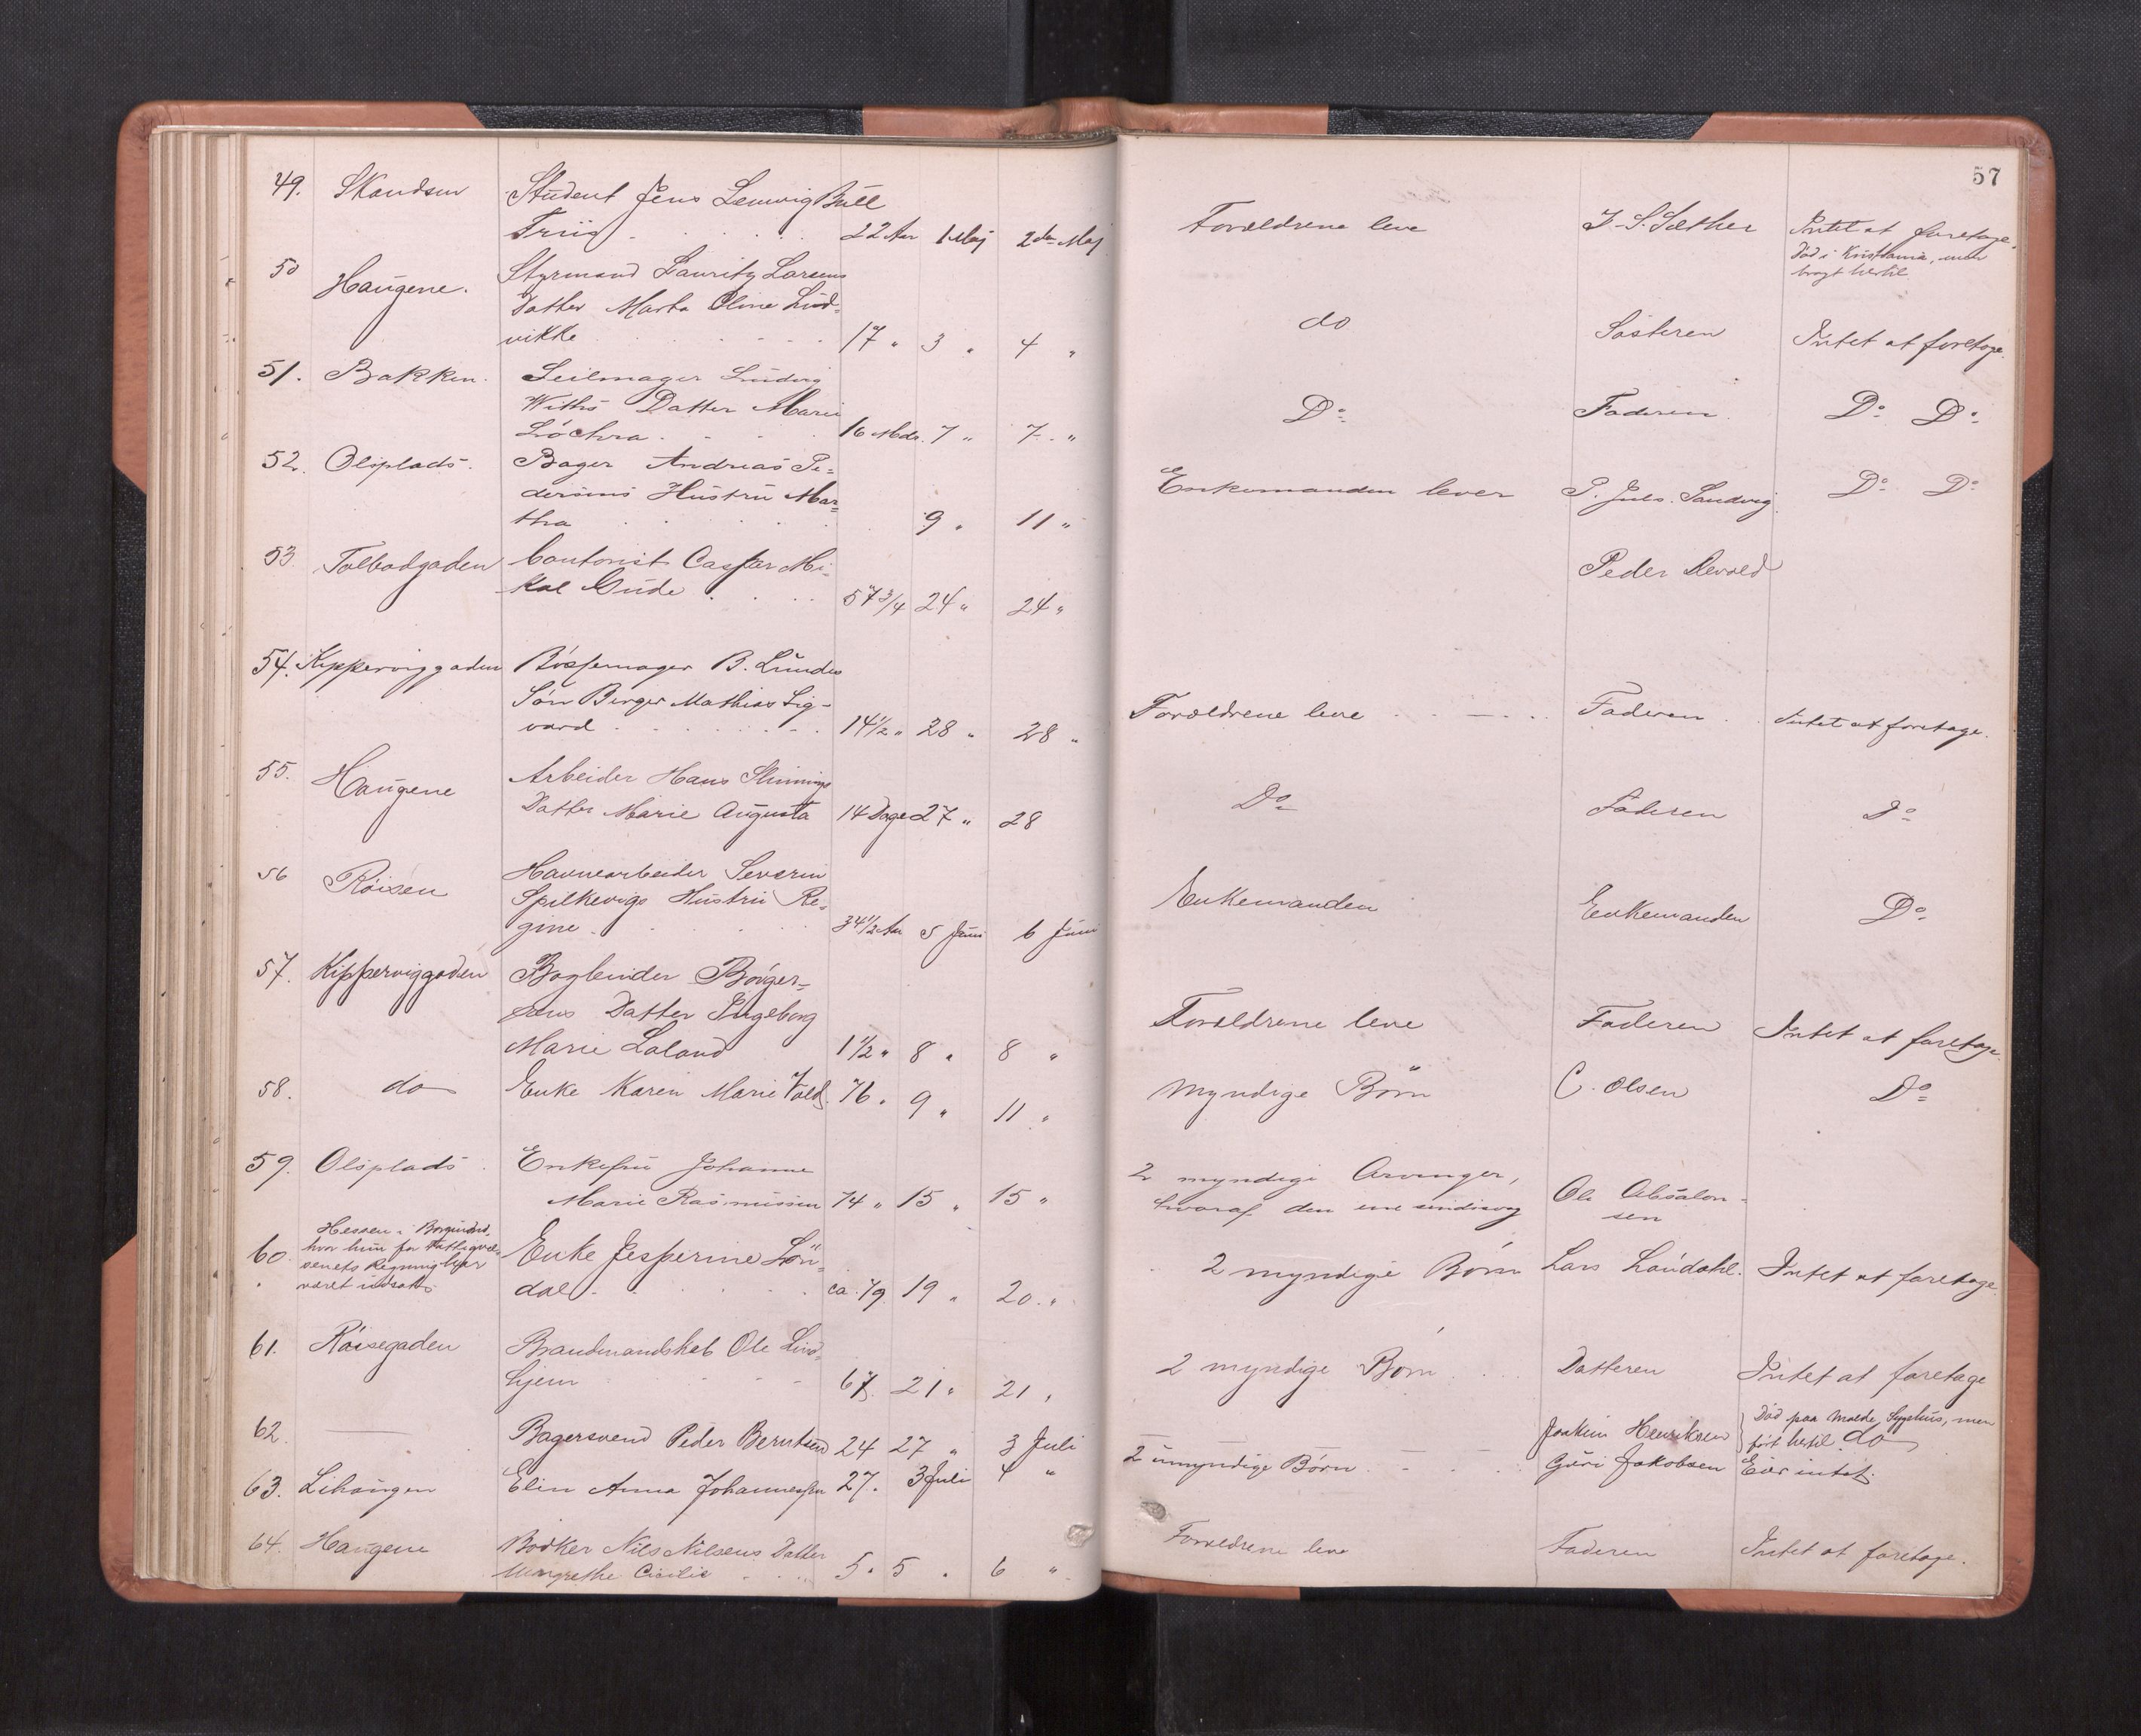 57
49. Skandsen Student Jens Lenwig Bull
Friis 22 Aar 1 Maj 2den Maj Forældrene leve J. S. Sæther Intet at foretage.
Död i Kristiania, men
bragt hertil
50 Haugene. Styrmand Lauritz Larsens
Datter Marta Oline Lud-
vikke 17 " 3 " 4 " do Søsteren Intet at foretage.
51. Bakken. Seilmager Ludvig
Withs Datter Marie
16 Mdr. 7 " 7 " Do Faderen Do Do
52. Olsplads. Bager Andreas Pe=
dersens Hustru Mar=
tha 9 " 11 " Enkemanden lever P. Juls. Sandvig Do Do
53 Tolbodgaden Contorist Casper Mi-
kal Gude 57 3/4 24 " 24 " Peder Devold
54. Kipperviggaden Bössemager B. Lundes
Sön Birger Mathias Sig-
vard 14 1/2 " 28 " 28 " Forældrene leve Faderen Intet at foretage.
55. Haugene Arbeider Hans Slinnings
Datter Marie Augusta 14 Dage 27 " 28 Do Faderen Do
56 Röisen Havnearbeider Severin
Spilkevigs Hustru Re-
gine 34 1/2 Aar 5 Juni 6 Juni Enkemanden Enkemanden Do
57. Kipperviggaden Bogbinder Börger=
sens Datter Ingeborg
Marie Laland 1 1/2 " 8 " 8 " Forældrene leve Faderen Intet at foretage.
58. do Enke Karen Marie Vold. 76 " 9 " 11 " Myndige Börn C. Olsen Do
59. Olsplads Enkefru Johanne
Marie Rasmussen 74 " 15 " 15 " 2 myndige Arvinger,
hvoraf den ene sindssvag Ole Absalon-
sen
60 Hessen i Borgund,
hvor hun for Fattigvæ-
senets Regning har
været indsat. Enke Jesperine Lön-
dal ca. 79 19 " 20 " 2 myndige Börn Lars Löndahl. Intet at foretage.
61. Röisegaden Brandmandskab Ole Lind-
hjem 67 21 " 21 " 2 myndige Börn Datteren Intet at foretage
62. Bagersvend Peder Berntsen 24 27 " 3 Juli Joakim Henriksen Död paa Molde Sygehus, men
fört hertil. do
63. Lihaugen Elin Anna Johannessen 27. 3 Juli 4 " 2 umyndige Börn Guri Jakobsen Eier intet.
64. Haugene Bödker Nils Nilsens Datter
Margrethe Cicilie 5 " 5 " 6 " Forældrene leve Faderen Intet at foretage.